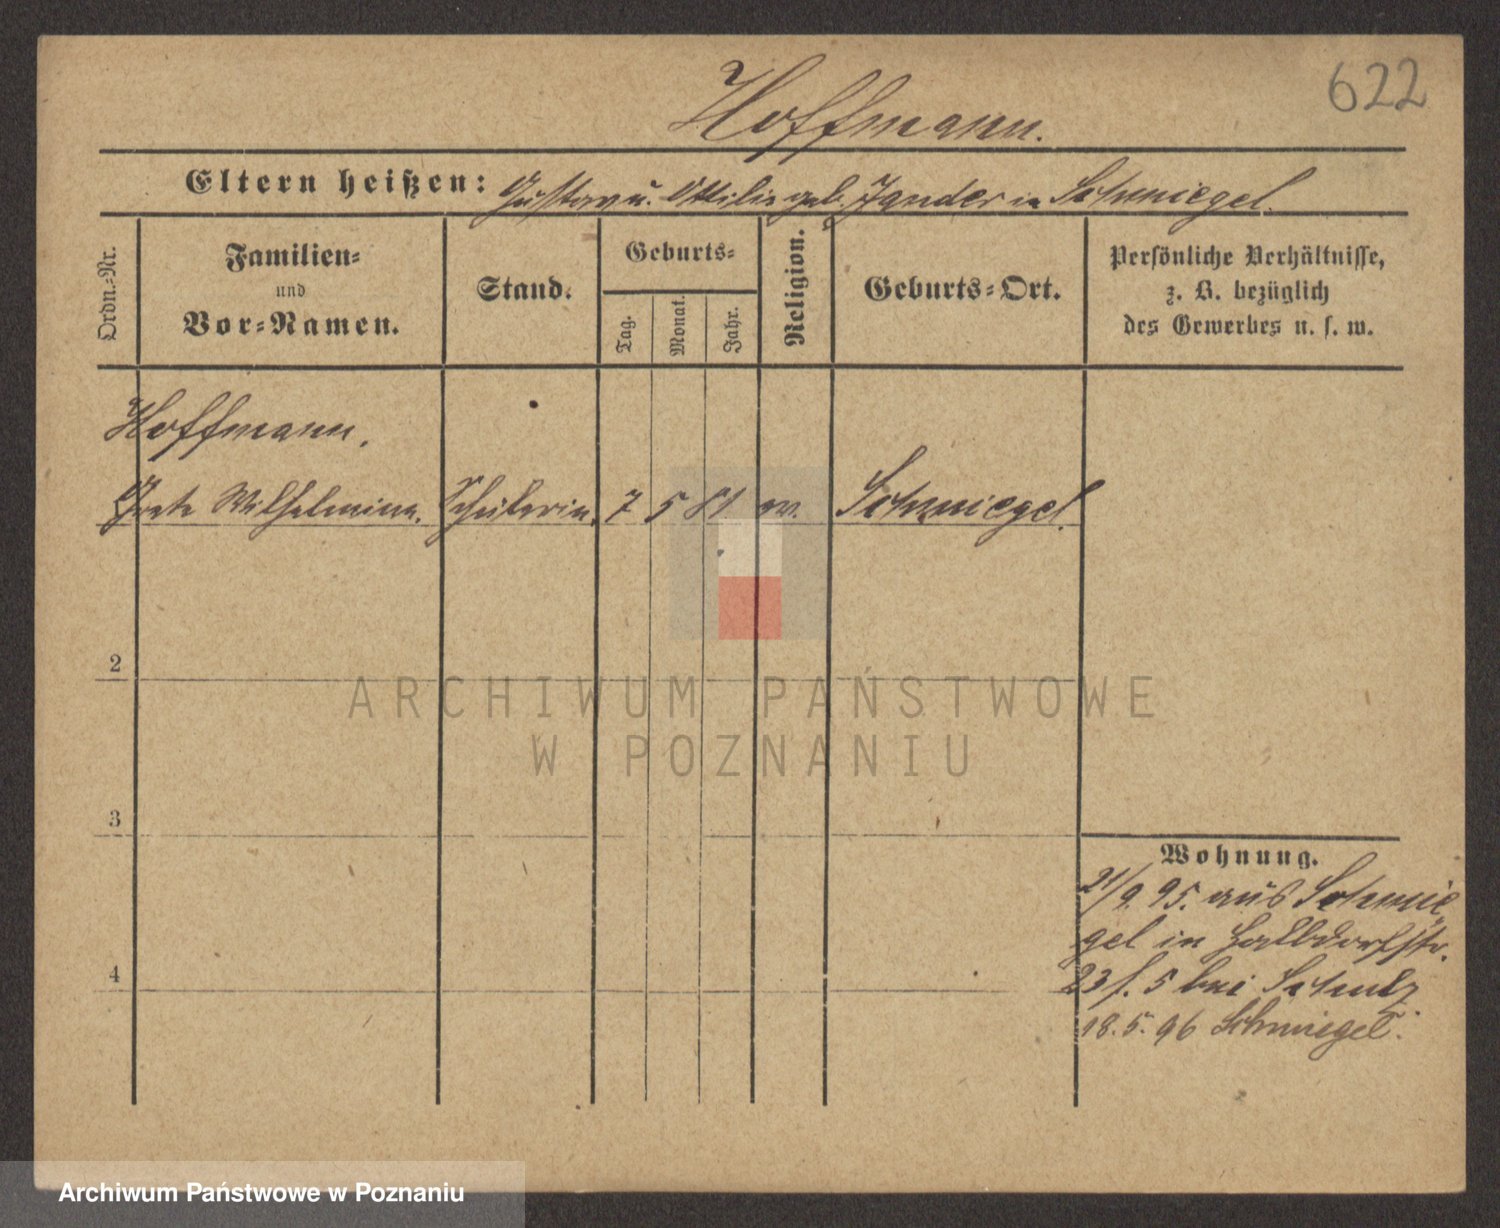 622
Hoffmann.
Eltern heißen: Gustav u. Ottilie geb. Zander in Schmiegel.
Ordn.-Nr.
Familien-
und
Vor-Namen.
Stand.
Geburts-
Tag.
Monat.
Jahr.
Religion.
Geburts-Ort.
Persönliche Verhältnisse,
z. B. bezüglich
des Gewerbes u. s. w.
Hoffmann.
Grete Wilhelmine. Schülerin. 7 5 81 ev. Schmiegel.
2
3
4
ARCHIWUM PAŃSTWOWE
W POZNANIU
Wohnung.
21/9. 95. aus Schmie
gel in Halbdorfstr.
23 f. 5 bei Schulz.
18. 5. 96 Schmiegel.
Archiwum Państwowe w Poznaniu